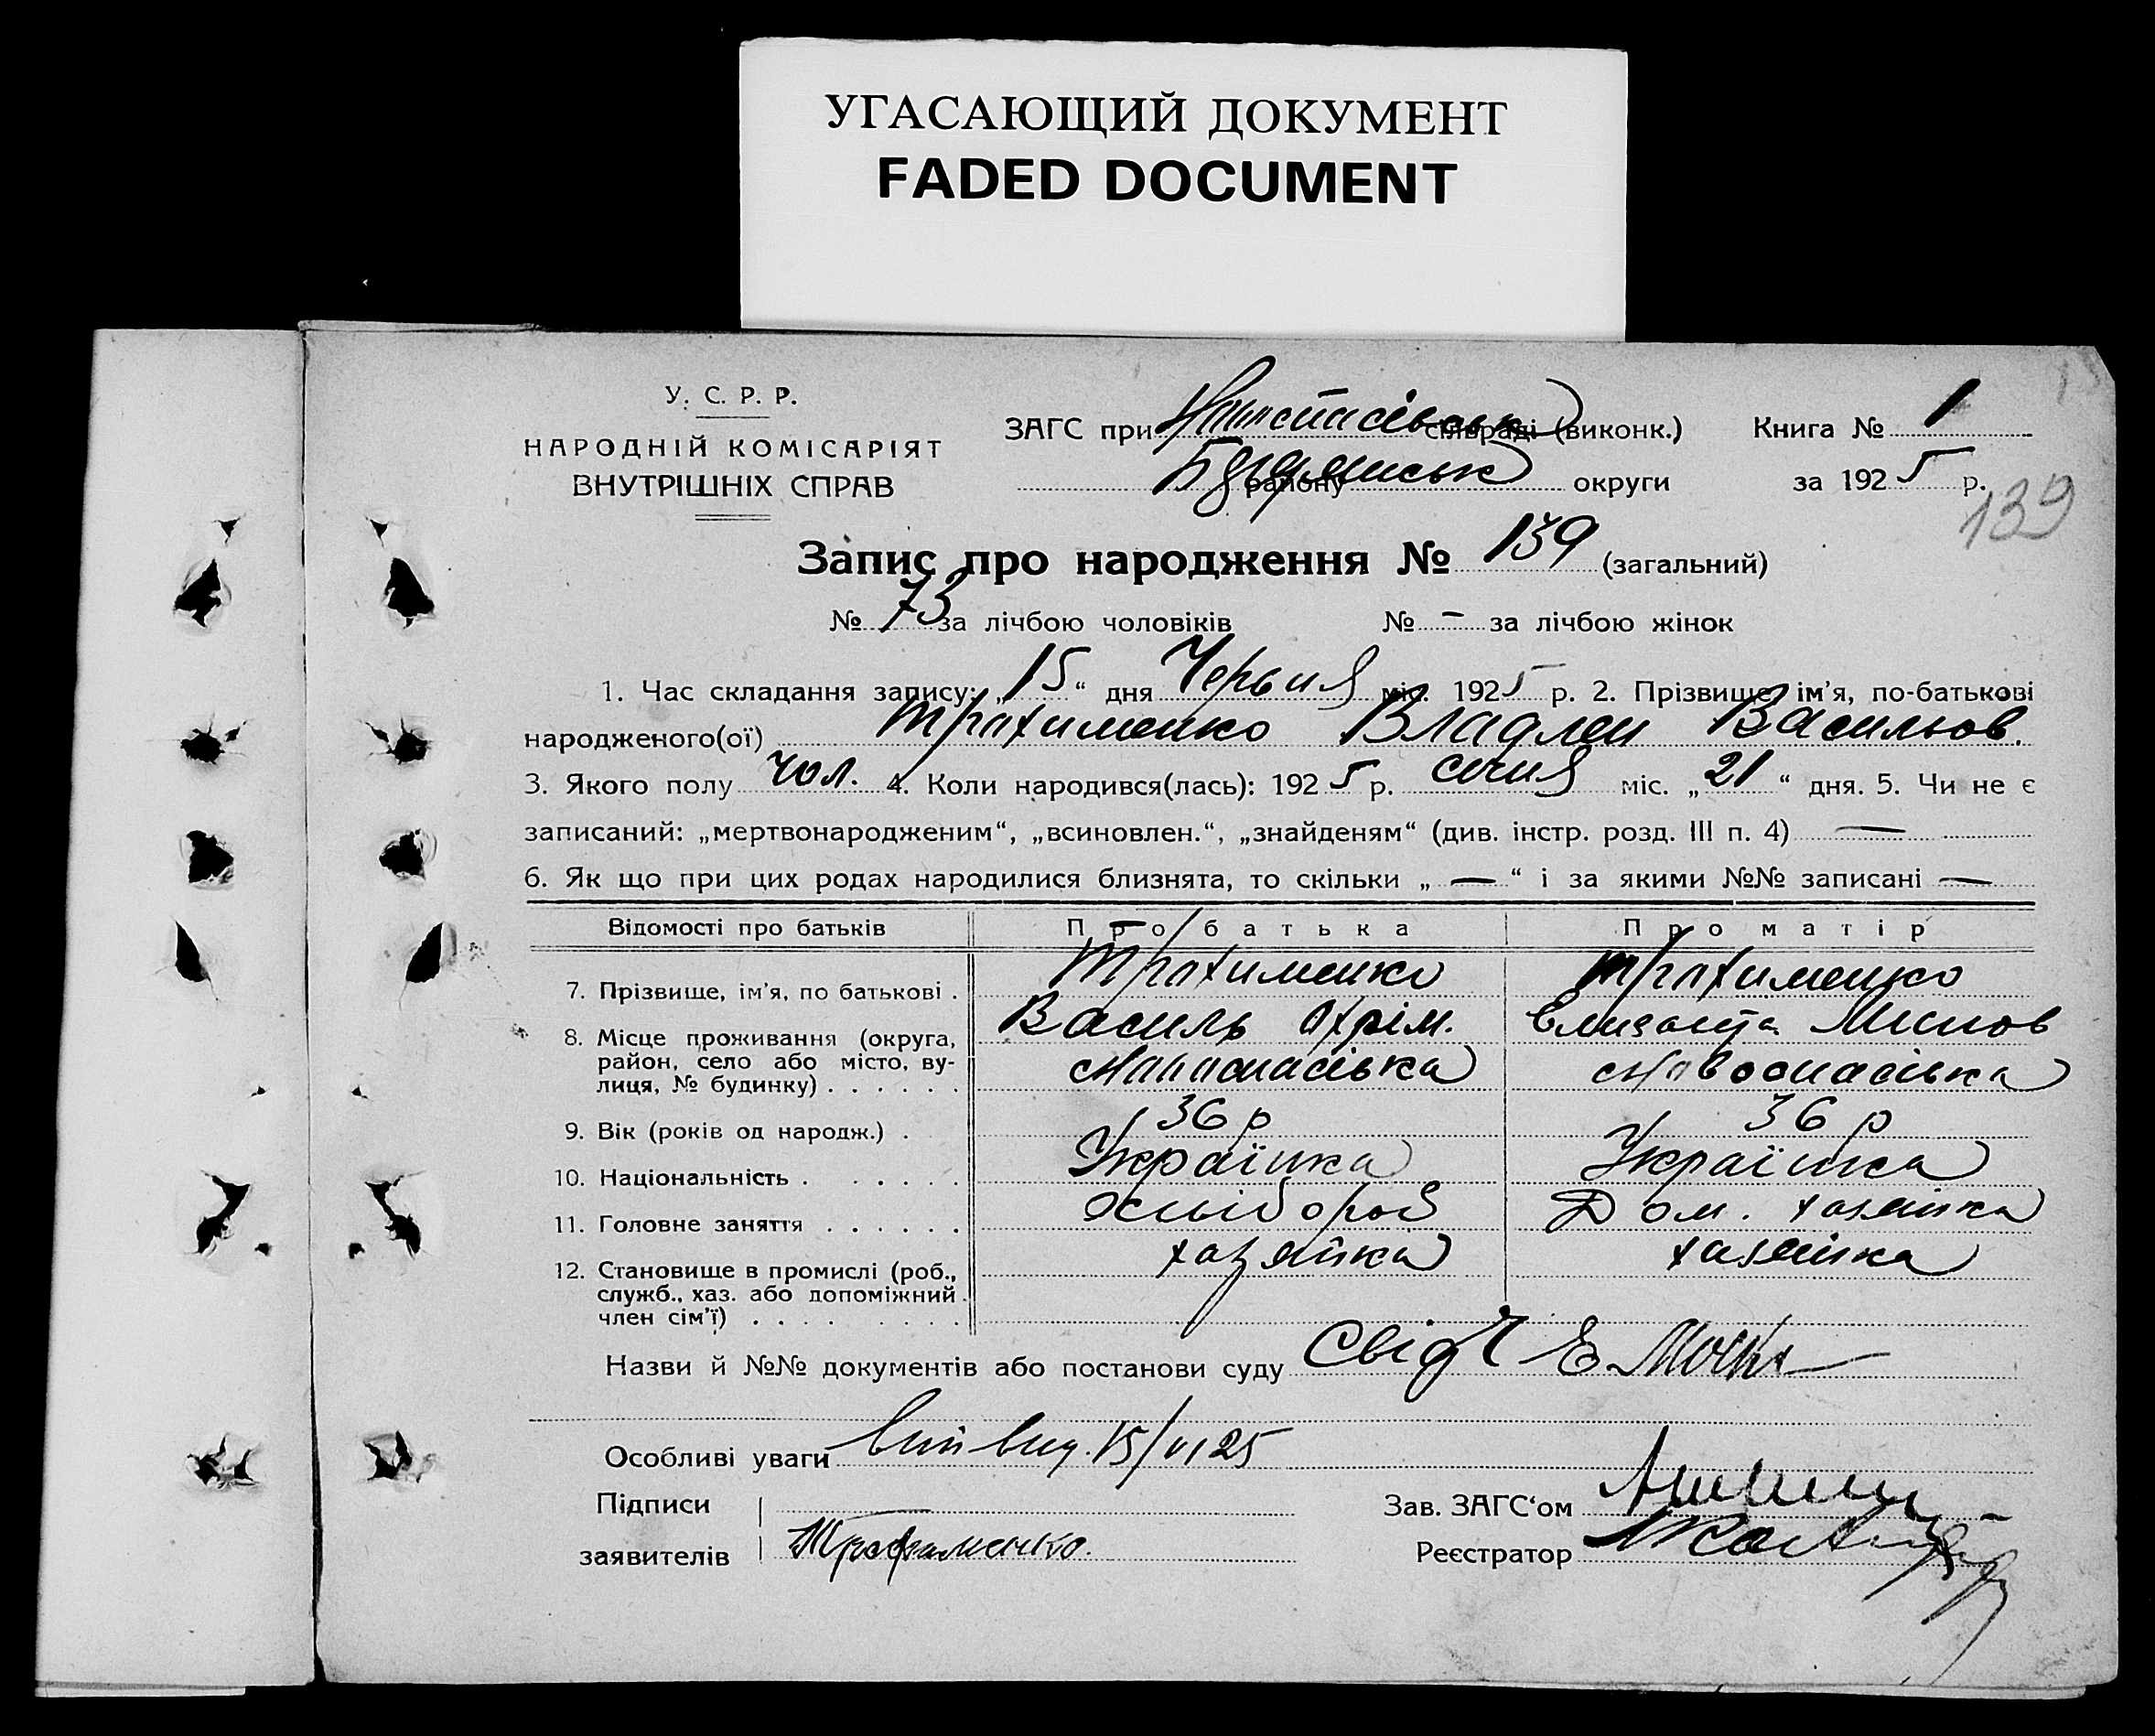 УГАСАЮЩИЙ ДОКУМЕНТ
FADED DOCUMENT
У. С. Р. Р.
НАРОДНІЙ КОМІСАРІЯТ
ВНУТРІШНІХ СПРАВ
ЗАГС при сільраді (виконк.) Книга № 1
району округи за 1925 р.
139
Запис про народження № 139 (загальний)
№ 73 за лічбою чоловіків № — за лічбою жінок
1. Час складання запису: „15“ дня Червня міс. 1925 р. 2. Прізвище, ім'я, по-батькові
народженого(ої) Трахименко Владлен Васильов.
3. Якого полу чол. 4. Коли народився(лась): 1925 р. січня міс. „21“ дня. 5. Чи не є
записаний: „мертвонародженим“, „всиновлен.“, „знайденям“ (див. інстр. розд. III п. 4) —
6. Як що при цих родах народилися близнята, то скільки „—“ і за якими №№ записані —
Відомості про батьків Про батька Про матір
7. Прізвище, ім'я, по батькові . Трахименко Трахименко
Василь Охрім. Елизаита Минов
8. Місце проживання (округа,
район, село або місто, ву-
лиця, № будинку) . . . . . .
9. Вік (років од народж.) . 36 р 36 р
10. Національність . . . . . . Українка Українка
11. Головне заняття . . . . . . Дом. хазяйка
12. Становище в промислі (роб.,
служб., хаз. або допоміжний
член сім'ї) . . . . . . . . хазяйка хазяйка
Назви й №№ документів або постанови суду Свідч
Особливі уваги 15/VI 25
Підписи
заявителів Трофименко.
Зав. ЗАГС‘ом
Реєстратор